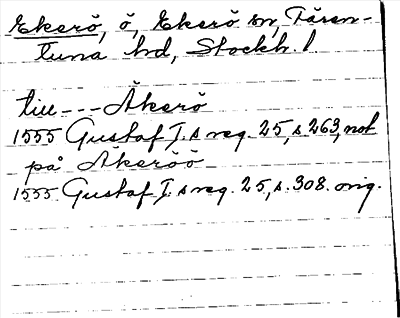 Ekerö, ö, Ekerö sn, Fären-
tuna hd, Stockh. l
till --- Åkerö
1555 Gustaf I.s reg. 25, s 263, not
på Åkeröö
1555 Gustaf I.s reg. 25, s. 308. orig.